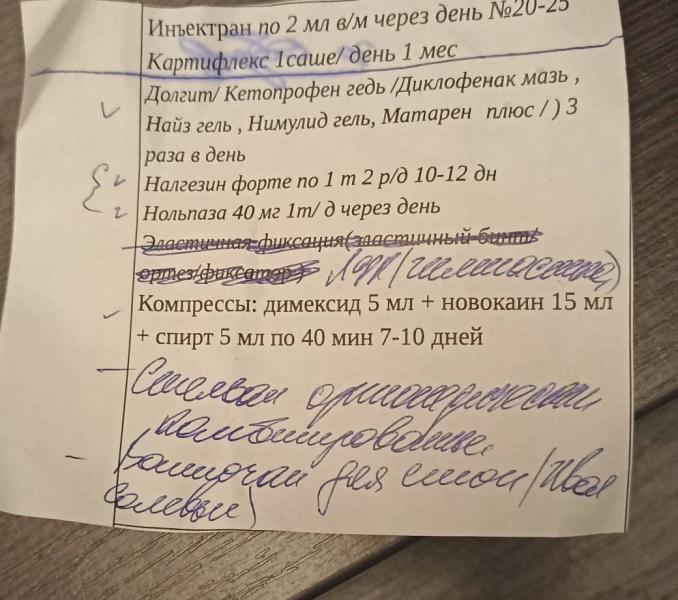 Инъектран по 2 мл в/м через день №20-25
Картифлекс 1саше/ день 1 мес
Долгит/ Кетопрофен гедь /Диклофенак мазь ,
Найз гель , Нимулид гель, Матарен плюс / ) 3
раза в день
Налгезин форте по 1 т 2 р/д 10-12 дн
Нольпаза 40 мг 1т/ д через день
Эластичная фиксация(эластичный бинт/
ортез/фиксатор)
ЛФК/гимнастика)
Компрессы: димексид 5 мл + новокаин 15 мл
+ спирт 5 мл по 40 мин 7-10 дней
Стельки ортопедические
комбинированные
для стоп/